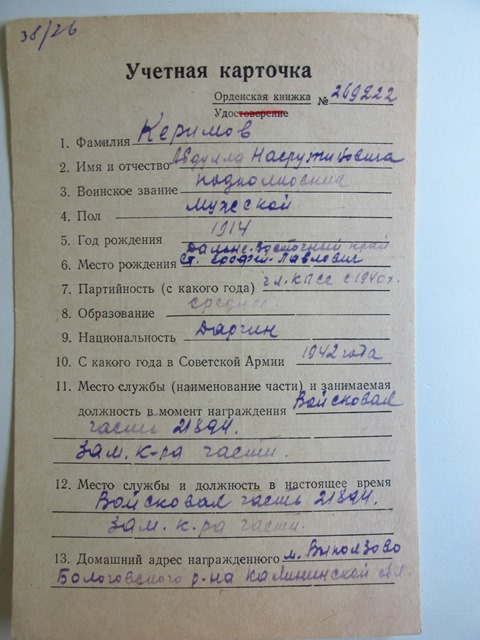 38/26
Учетная карточка
Орденская книжка № 269222
Удостоверение
1. Фамилия Керимов
2. Имя и отчество Абдулла
3. Воинское звание подполковник
4. Пол Мужской
5. Год рождения 1914
Дальне-Восточный край
6. Место рождения ст.
7. Партийность (с какого года) чл. КПСС с 1940 г.
8. Образование среднее
9. Национальность Даргин
10. С какого года в Советской Армии 1942 года
11. Место службы (наименование части) и занимаемая
должность в момент награждения Войсковая
часть 21894.
Зам. к-ра части.
12. Место службы и должность в настоящее время
Войсковая часть 21894.
Зам. к-ра части.
13. Домашний адрес награжденного м. Выползово
Бологовского р-на Калининской обл.